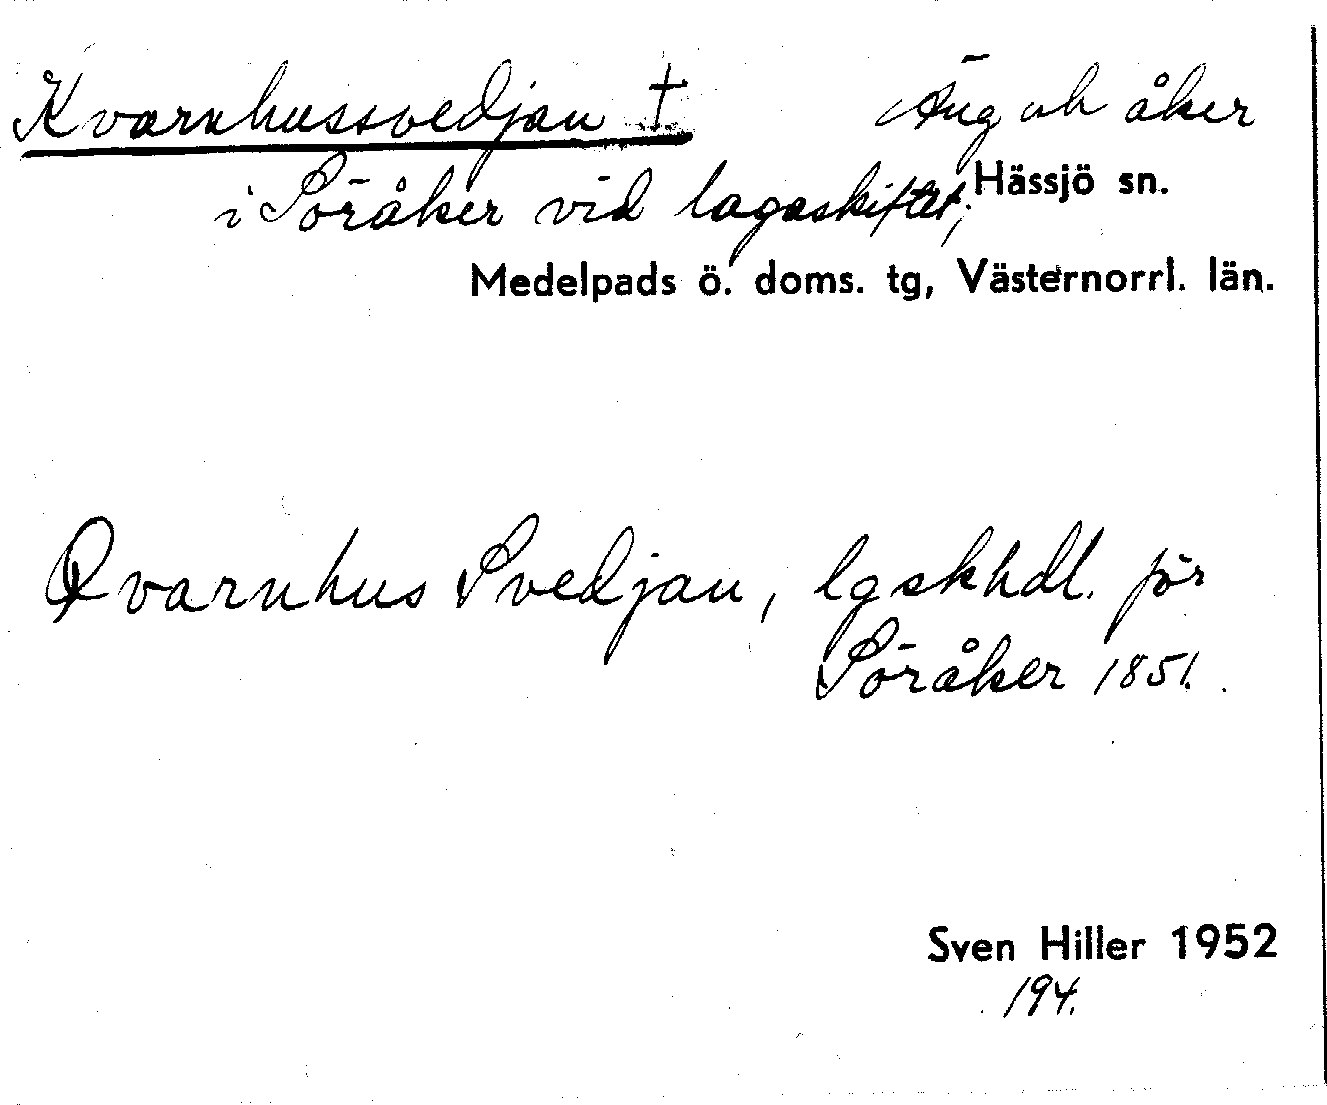 Kvarnhussvedjan † Äng och åker
i Söråker vid lagaskiftet; Hässjö sn.
Medelpads ö. doms. tg, Västernorrl. län.
Qvarnhus Svedjan, lgskhdl. för
Söråker 1851.
Sven Hiller 1952
194.